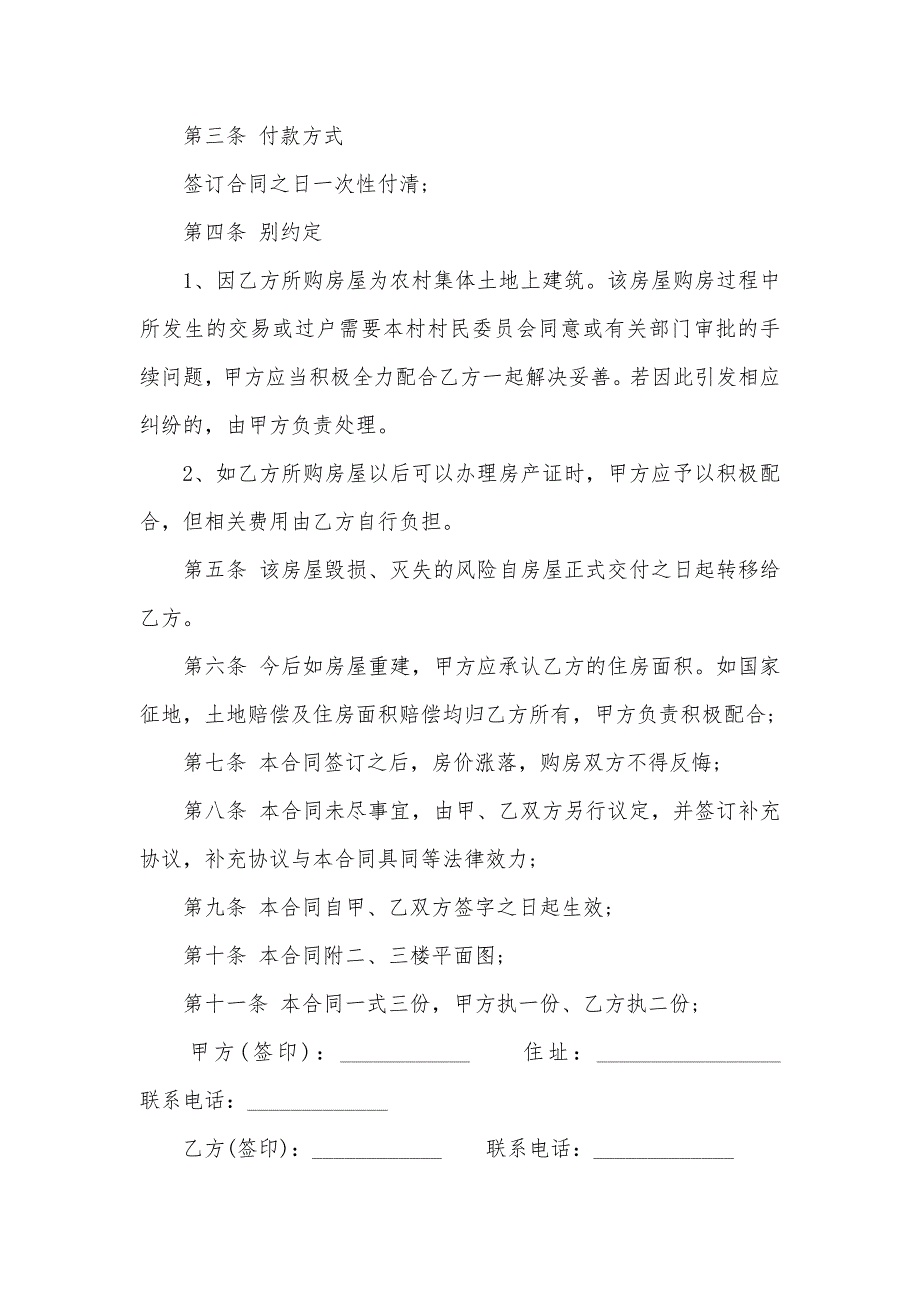 第三条 付款方式
签订合同之日一次性付清;
第四条 别约定
1、因乙方所购房屋为农村集体土地上建筑。该房屋购房过程中
所发生的交易或过户需要本村村民委员会同意或有关部门审批的手
续问题，甲方应当积极全力配合乙方一起解决妥善。若因此引发相应
纠纷的，由甲方负责处理。
2、如乙方所购房屋以后可以办理房产证时，甲方应予以积极配
合，但相关费用由乙方自行负担。
第五条 该房屋毁损、灭失的风险自房屋正式交付之日起转移给
乙方。
第六条 今后如房屋重建，甲方应承认乙方的住房面积。如国家
征地，土地赔偿及住房面积赔偿均归乙方所有，甲方负责积极配合;
第七条 本合同签订之后，房价涨落，购房双方不得反悔;
第八条 本合同未尽事宜，由甲、乙双方另行议定，并签订补充
协议，补充协议与本合同具同等法律效力;
第九条 本合同自甲、乙双方签字之日起生效;
第十条 本合同附二、三楼平面图;
第十一条 本合同一式三份，甲方执一份、乙方执二份;
甲方(签印)：____________ 住址：_________________
联系电话：_____________
乙方(签印)：____________ 联系电话：_____________